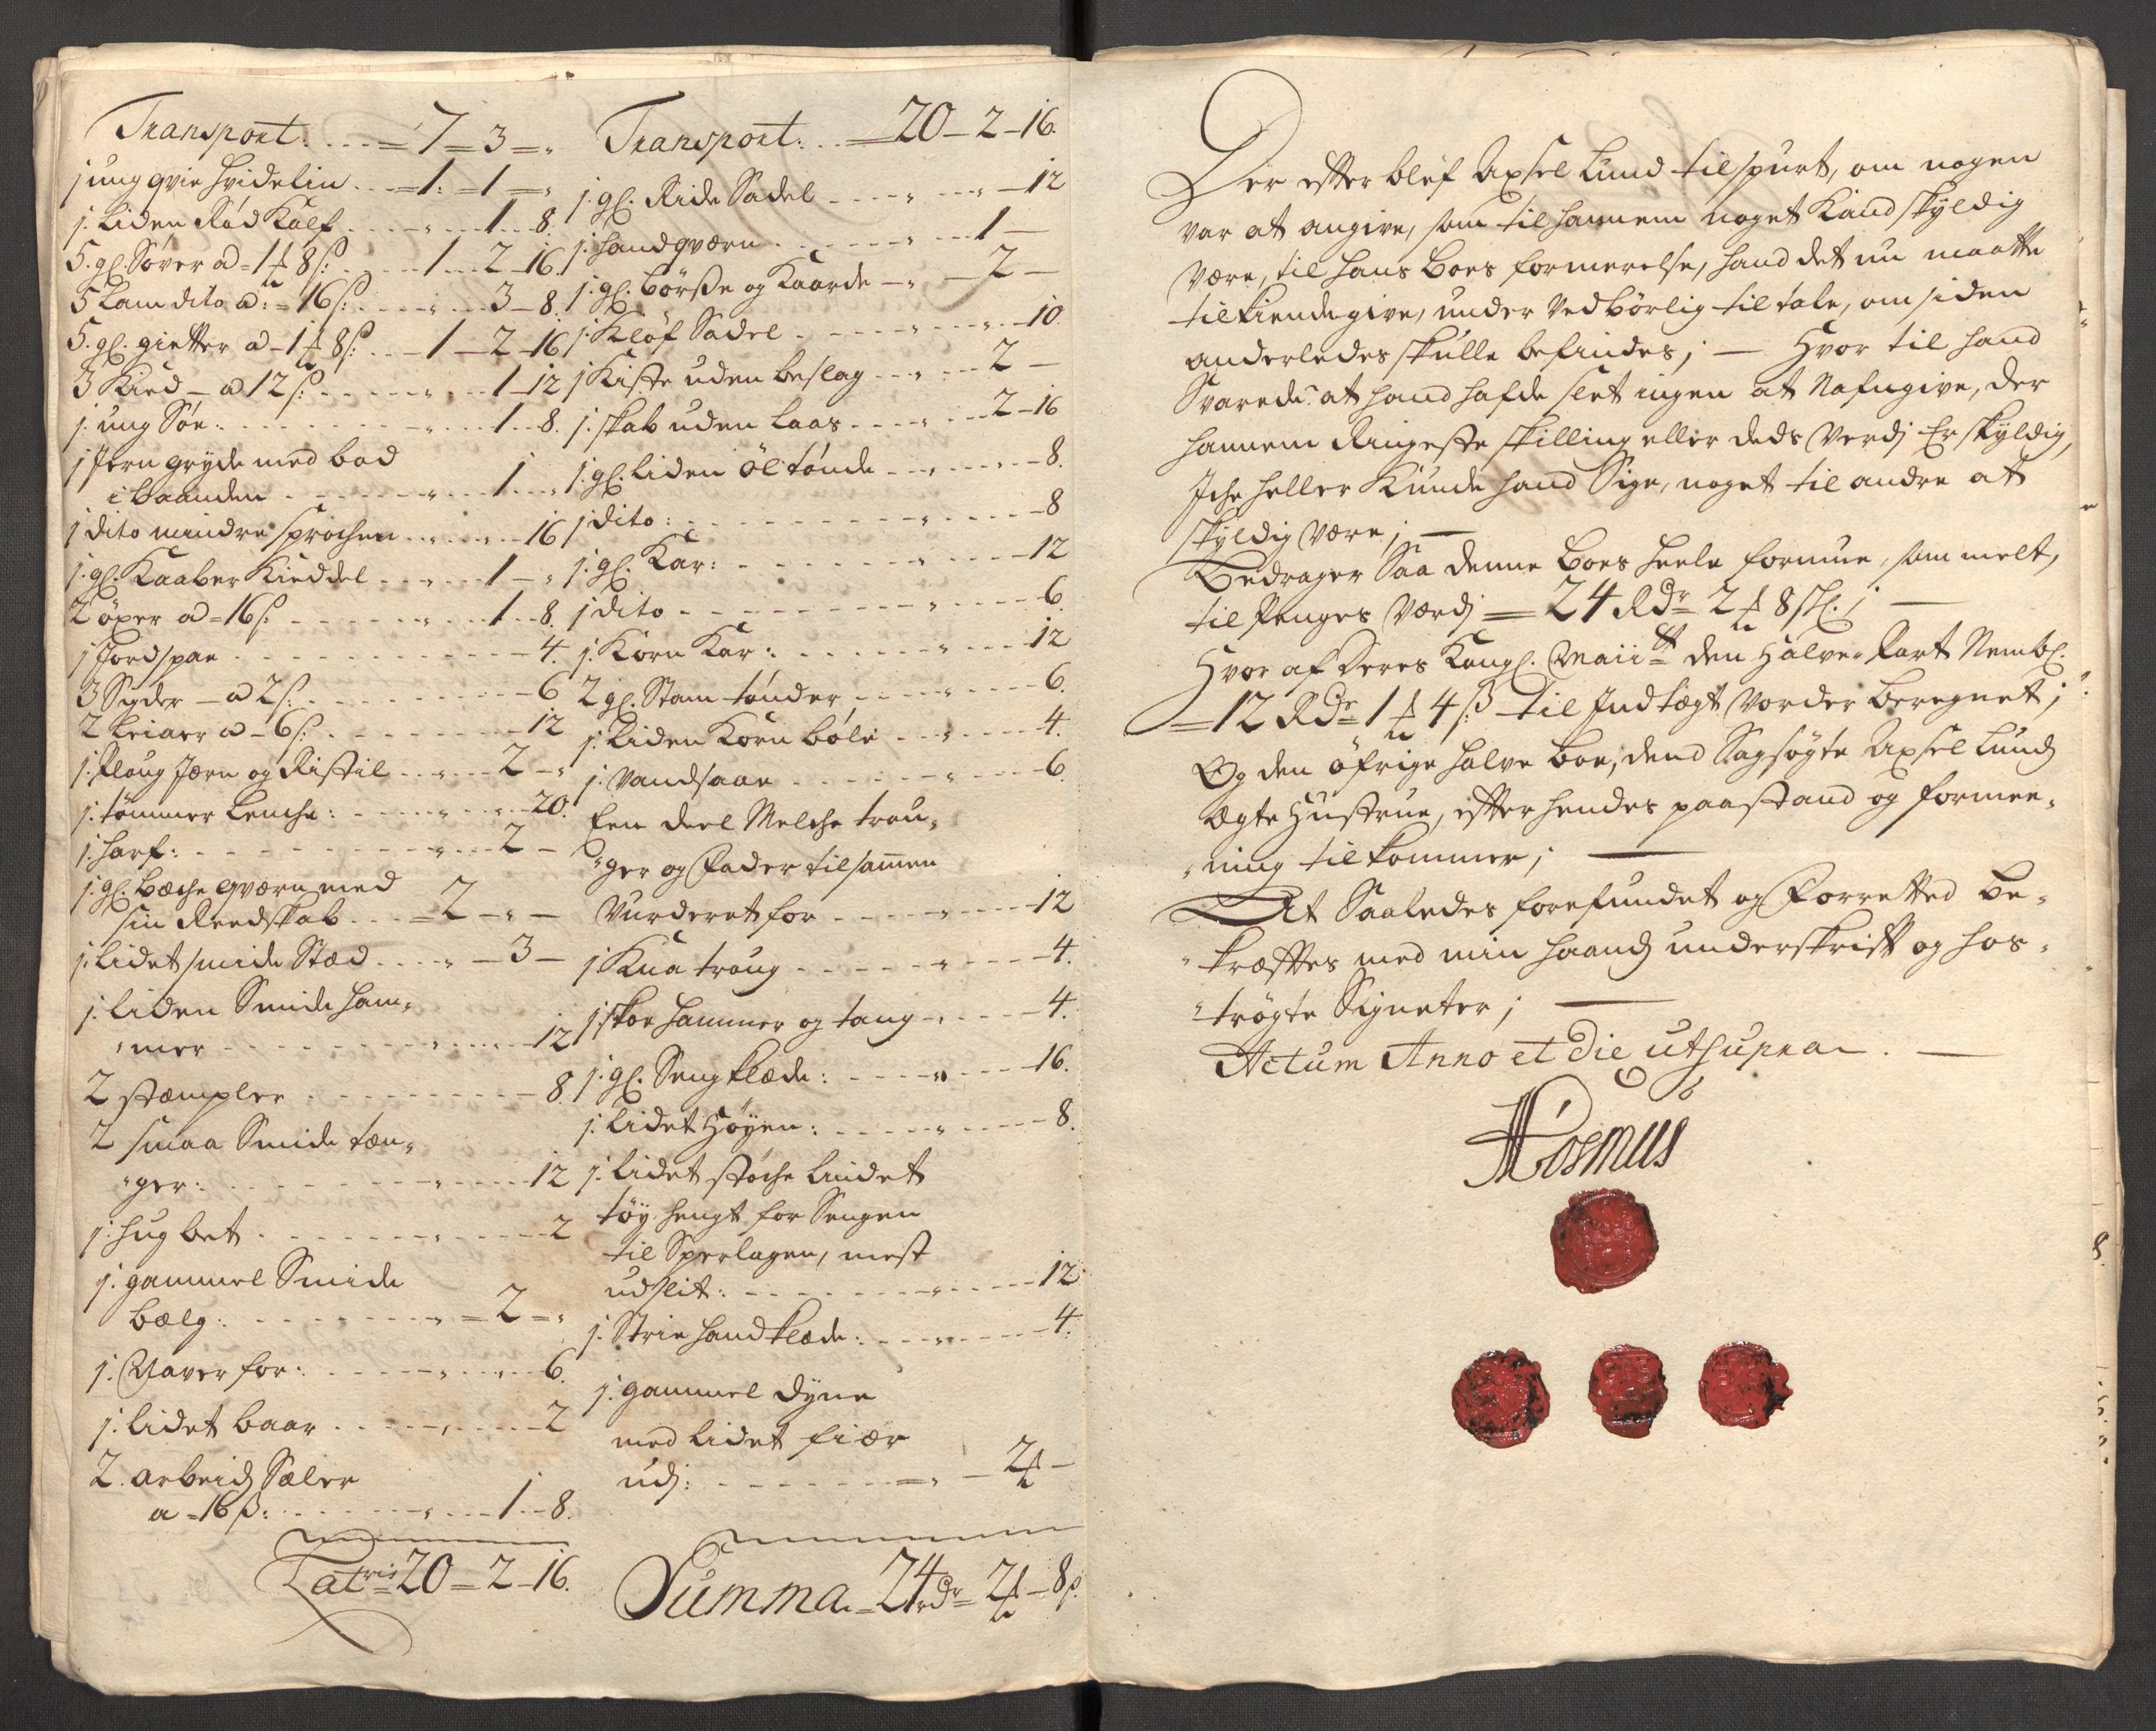 Transport: . . . = 7 = 3 = "
j ung qvie hvidelin . . = 1: = 1 = "
j. liden Rød Kalf . . . . " . . 1 . . 8.
5. gl. Søver a = 1 ƒ 8 s: . . . 1 . . 2 - 16.
5 Lam dito a: = 16 s: . . . " . . 3 - 8.
5. gl. gietter a - 1 ƒ 8 s: . . - 1 - 2 - 16
3 Kied - a 12 s: . . . . " . . 1 - 12
j. ung Søe: . . . . . . " . . 1 . . 8.
j Jern gryde med bod
i baanden . . . . . . " . . 1 . . "
j dito mindre sprochen . . " . . " - 16
j. gl. Kaaber Kieddel . . . " . . 1 - "
2 öxer a = 16 s: . . . . . " . . 1 . . 8.
j Jordspae . . . . . . . . . - 4.
3 Sigder - a 2 s: . . . . . . . - 6
2 Leiaer a - 6 s: . . . . . . . - 12
j. Ploug Jærn og Ristil . . " . . 2 - "
j. tømmer Lenche: . . . . " . . " . . 20.
j. harf: . . . . . . . " . . 2 -
j. gl. Bæche qværn med
sin Reedskab . . . = 2 - " -
j. lidet smide Stæd . . . . " - 3 -
j. liden Smide ham"
"mer . . . . . . . . " . . " . . 12
2 stempler . . . . . . . . - 8.
2 smaa Smide tæn"
"ger: . . . . . . . . " . . . 12
j. hug bet . . . . . . " . . . - 2
j. gammel Smide
bælg: . . . . . . . " = 2 = "
j. Naverfor: . . . . . " . . " . . 6.
j. lidet baar . . . . . " . . . - 2
2. arbeid Sæler
a = 16 ß: . . . . . . " . . . 1 . . 8.
Latris 20 = 2 - 16.
Transport: . . = 20 - 2 - 16.
j. gl. Ride Sadel . . . . " . . . " - 12
j. handqværn . . . . . . " . . . 1 -
j. gl. börsse og Kaarde - " - 2 -
j Kløf Sadel . . . . . . " . . . " . . 10.
j Kiste uden beslag . . . " . . . 2 -
j. skab uden Laas . . . . " . . . 2 - 16
j. gl. liden öltønde . . . " . . . " . . 8.
j dito: . . . . . . . . . " . . . . 8
j. gl. Kar: . . . . . . . " . . . . 12
j dito . . . . . . . . . " . . . . 6.
j. Korn Kar: . . . . . . " . . . . 12
2 gl. Stam tønder . . . . " . . . . 6.
j. liden Korn böle . . . " . . . . 4.
j. Vandsaae . . . . . . " . . . . 6.
Een deel Melche trou"
"ger og Fader tilsamen
Vurderet for . . . . . " . . . . 12
j Kna troug . . . . . . " . . . . 4.
j. skoe hammer og tang . . " . . . 4.
j. gl. Sengklæde: . . . . " . . . 16.
j. lidet Høyen: . . . . . " . . . . 8.
j. lidet støche lindet
tøy hengt for Sengen
til Sperlagen, mest
udslit: . . . . . . . . " . . . . 12
j. Strie handklæde: . . . " . . . . 4.
j. gammel dyne
med lidet fiær
udj: . . . . . . . . = " - 2 ƒ -
Summa = 24 rdr = 2 ƒ - 8 s.
Der efter blef Axsel Lund tilspurt, om nogen
var at angive, som til hannem noget Kand skyldig
være, til hans Boes formerelse, hand det nu maatte
tilkiendegive, under vedbörlig tiltale, om siden
anderledes skulle befindes; — Hvor til hand
Svarede: at hand hafde slet ingen at Nafngive, der
hannem Ringeste skilling eller deds verdj Er skyldig,
Iche heller Kunde hand Sige, noget til andre at
skyldig være; —
Bedrager Saa denne Boes heele formue, som melt,
til Penges værdj = 24 Rdr 2 ƒ 8 sk. ; —
Hvor af Deres Kongl. Maiitt den Halve Part Nembl.
= 12 Rdr 1 ƒ 4 ß til Indtægt vorder beregnet;
Og den öfrige halve boe, dend Sagsøgte Axsel Lunds
ægte Hustrue, efter hendes paastand og formee"
"ning tilkommer; —
At Saaledes forefundet og Forretted be"
"kræftes med min haands underskrift og hos"
"trøgte Signeter; —
Actum Anno et Die utsupra. —
Rosmus